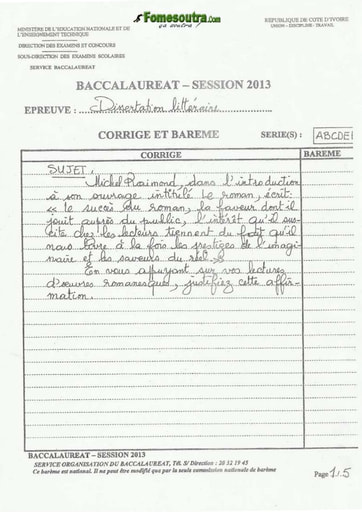 Fomesoutra.com
ça soutra !
MINISTERE DE L'EDUCATION NATIONALE ET DE
L'ENSEIGNEMENT TECHNIQUE
DIRECTION DES EXAMENS ET CONCOURS
SOUS-DIRECTION DES EXAMENS SCOLAIRES
SERVICE BACCALAUREAT
REPUBLIQUE DE COTE D'IVOIRE
UNION – DISCIPLINE - TRAVAIL
BACCALAUREAT – SESSION 2013
EPREUVE : Dissertation littéraire
CORRIGE ET BAREME SERIE(S) : ABCDEH
CORRIGE BAREME
SUJET.
Michel Raimond, dans l'introduction
à son ouvrage intitulé Le roman, écrit:
« Le succès du roman, la faveur dont il
jouit auprès du public, l'intérêt qu'il sus-
cite chez les lecteurs tiennent du fait qu'il
nous livre à la fois les prestiges de l'imagi-
naire et les saveurs du réel. »
En vous appuyant sur vos lectures
d'œuvres romanesques, justifiez cette affir-
mation.
BACCALAUREAT – SESSION 2013
SERVICE ORGANISATION DU BACCALAUREAT, Tél. S/ Direction : 20 32 19 45
Ce barème est national. Il ne peut être modifié que par la seule commission nationale de barème
Page 1/5